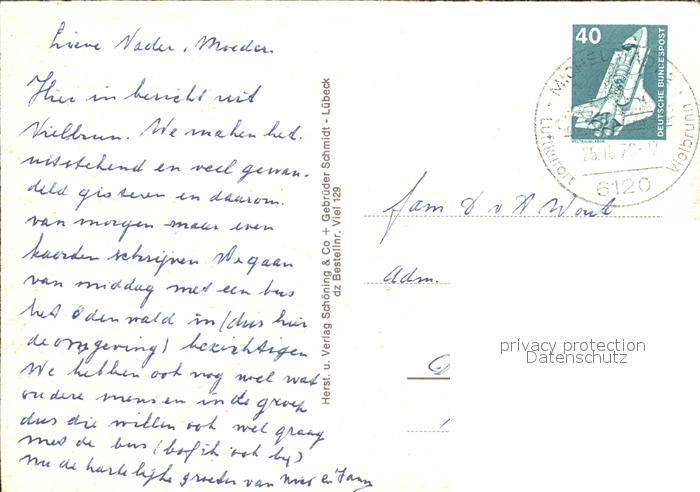 Lieve Vader, Moeder.
Hier in bericht uit
Vielbrun. We maken het
uitstekend en veel gewan-
deld gisteren en daarom
van morgen maar even
kaarten schrijven We gaan
van middag met een bus
het Odenwald in (dus hier
de omgeving) bezichtigen
We hebben ook nog wel wat
oudere mensen in de groep
dus die willen ook wel graag
met de bus (bof ik ook bij)
nu de hartelijke groeten van
Herst. u. Verlag Schöning & Co + Gebrüder Schmidt - Lübeck
dz Bestellnr. Viel 129
40
DEUTSCHE BUNDESPOST
WELTRAUMLABOR
Luftkurort
Vielbrunn
6120
fam v d Wout
Adm.
privacy protection
Datenschutz